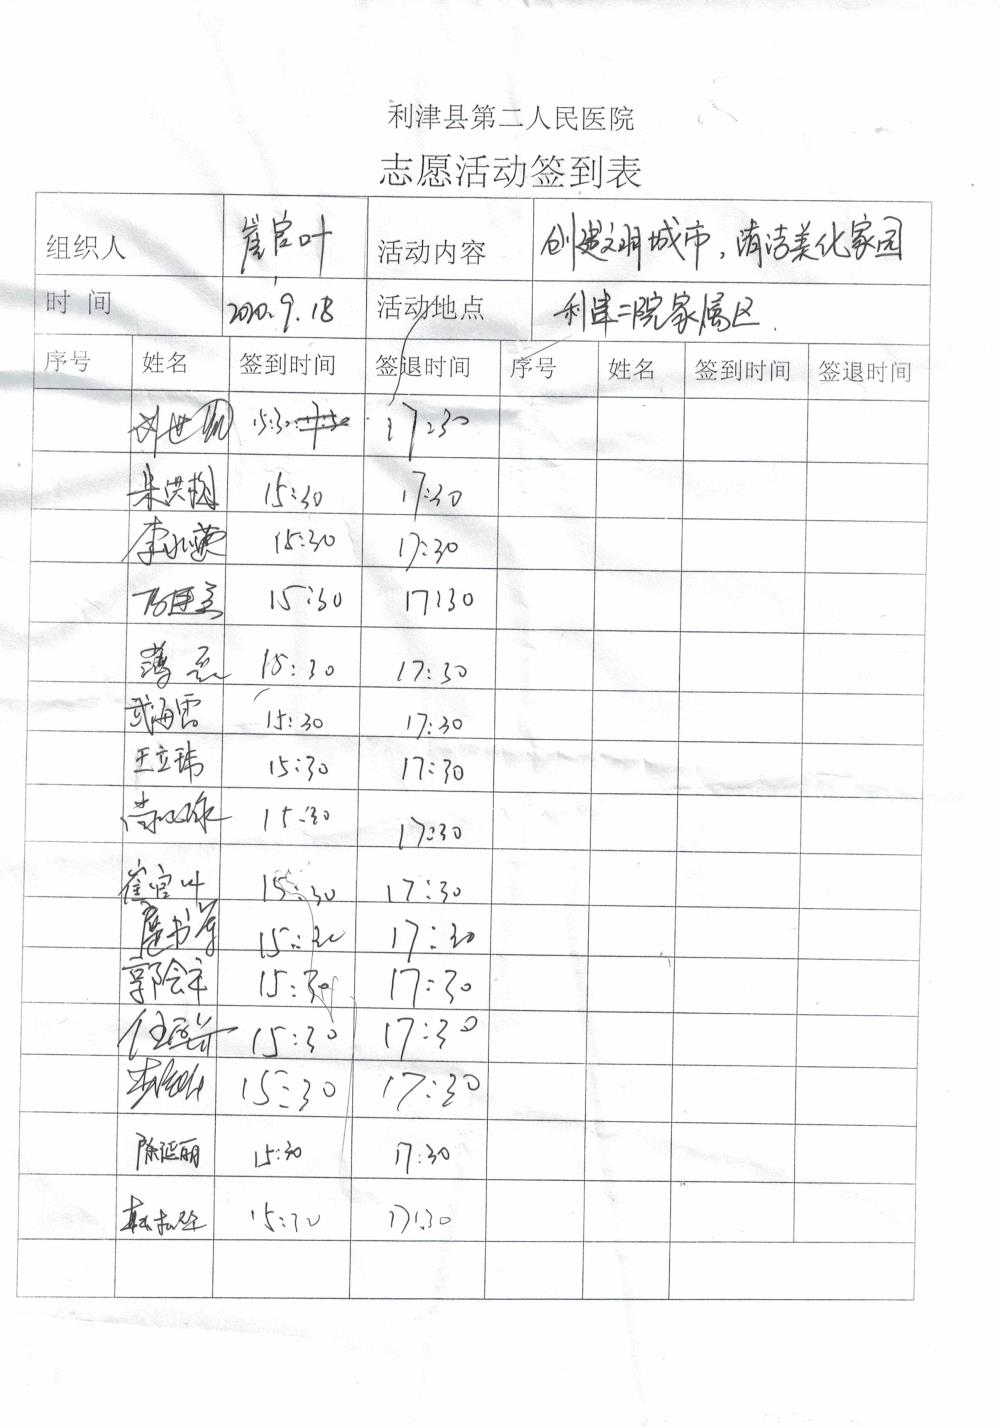 利津县第二人民医院
志愿活动签到表
组织人 崔官叶 活动内容 创建文明城市，清洁美化家园
时 间 2020.9.18 活动地点 利津二院家属区.
序号 姓名 签到时间 签退时间 序号 姓名 签到时间 签退时间
15:30 17:30
朱洪梅 15:30 17:30
15:30 17:30
15:30 17:30
薄 15:30 17:30
武海雷 15:30 17:30
王立玮 15:30 17:30
15:30 17:30
崔官叶 15:30 17:30
15:30 17:30
郭会军 15:30 17:30
15:30 17:30
15:30 17:30
陈延丽 15:30 17:30
15:30 17:30